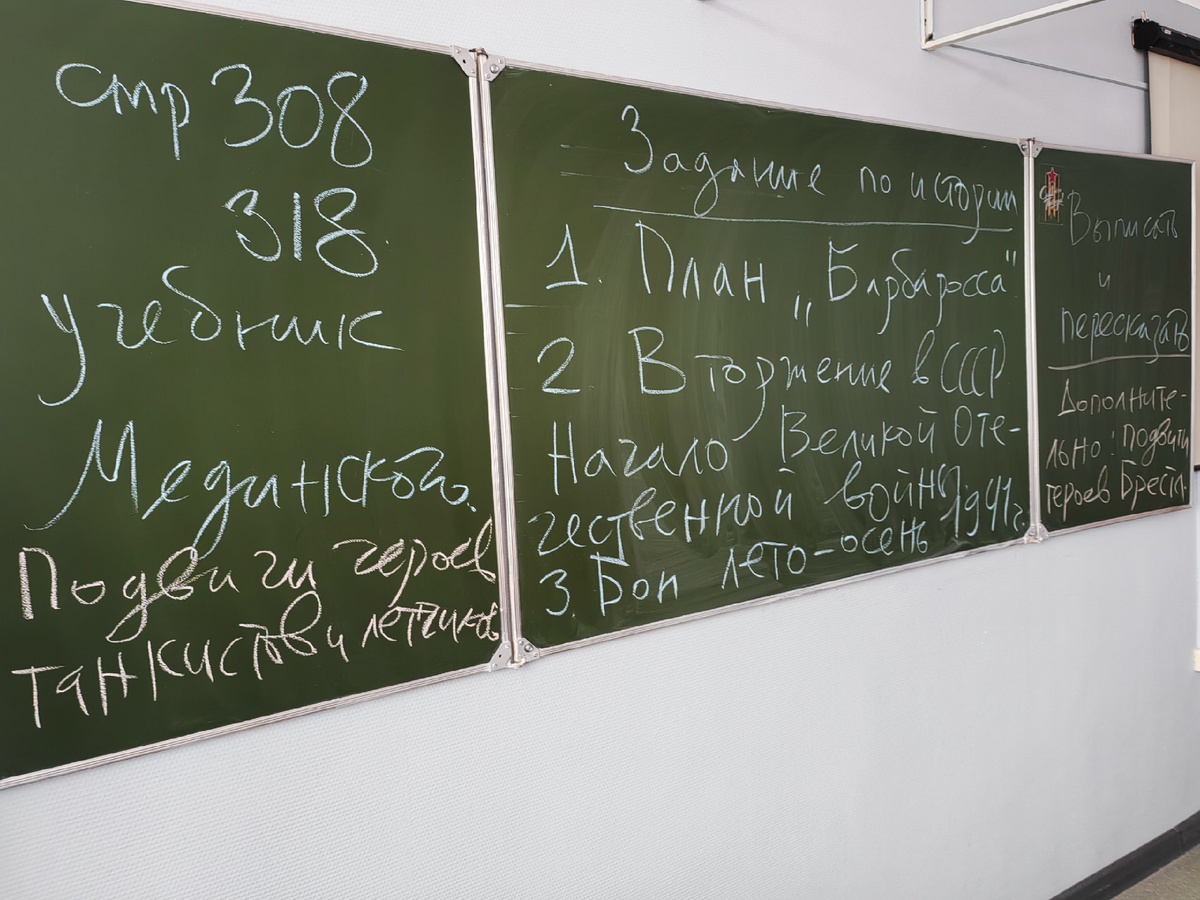 стр 308
318.
учебник
Мединского.
Подвиги героев
танкистов и летчиков
Задание по истории
1. План „Барбаросса"
2 Вторжение в СССР
Начало Великой Оте-
чественной войны.
3. Бои лето-осень 1941г.
Выписать
и
пересказать
Дополните-
льно: подвиги
героев Брест.